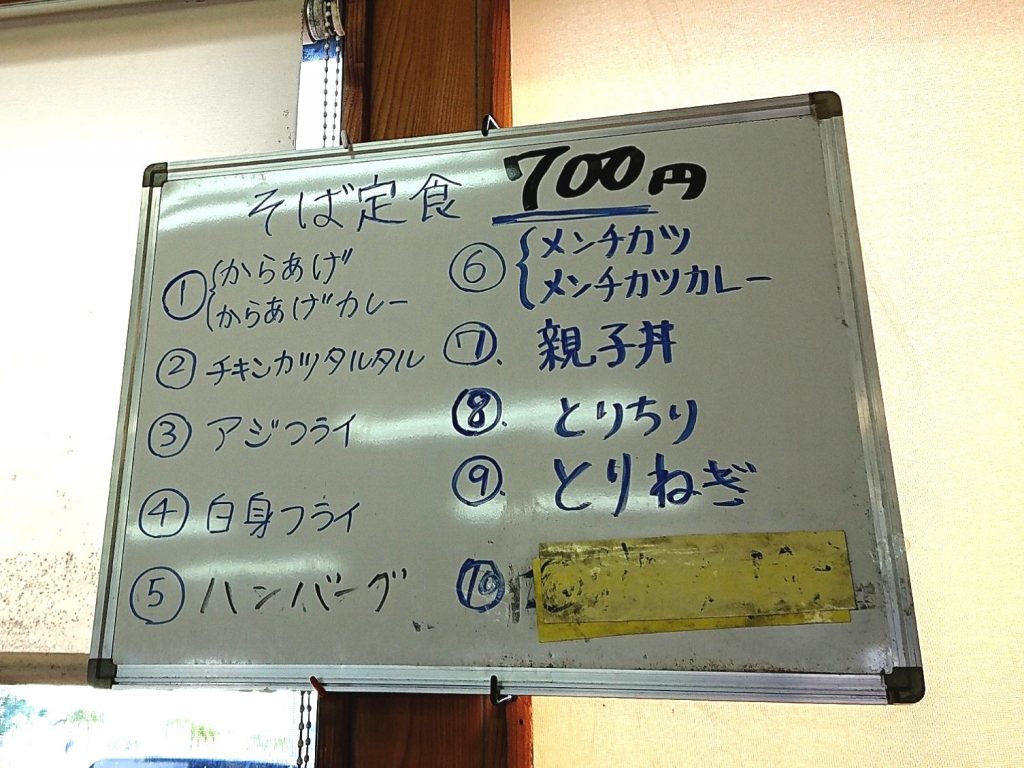 そば定食 700円
① からあげ
からあげカレー
② チキンカツタルタル
③ アジフライ
④ 白身フライ
⑤ ハンバーグ
⑥ メンチカツ
メンチカツカレー
⑦. 親子丼
⑧. とりちり
⑨. とりねぎ
⑩